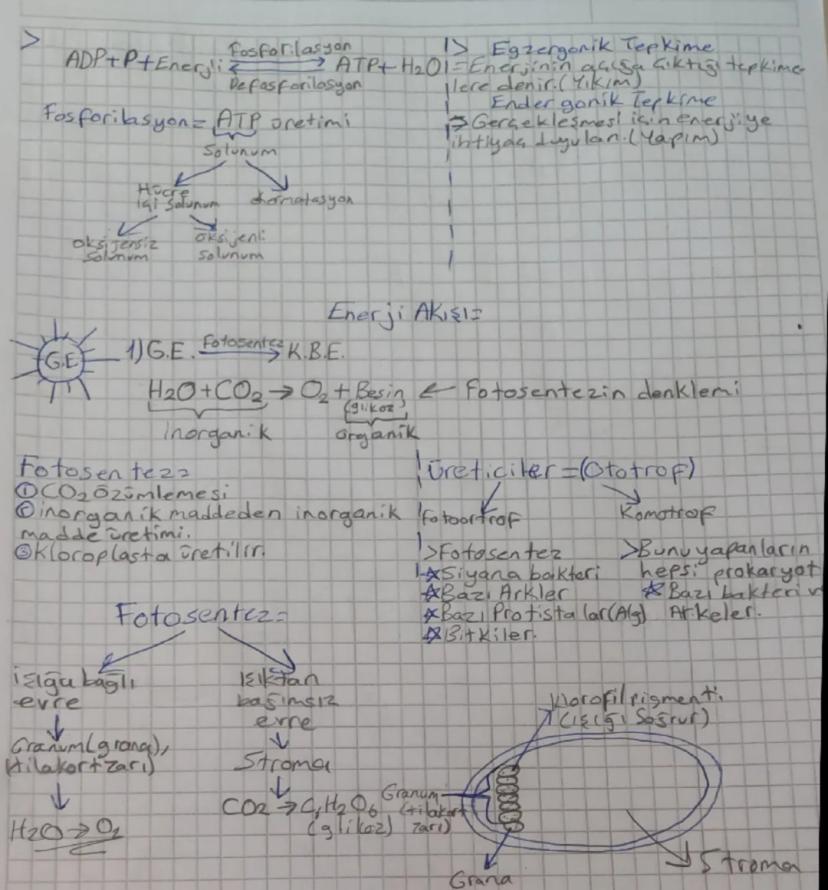 >
Fosforilasyon
ADP+P+Enerji ⇄ ATP+H2O
Defosforilasyon
Fosforilasyon= ATP üretimi
Solunum
Hücre
içi Solunum
Oksijensiz
Solunum
Oksijenli
Solunum
1> Egzergonik Tepkime
=Enerjinin açığa çıktığı tepkime
lere denir.(Yıkım)
Endergonik Tepkime
=> Gerçekleşmesi için enerjiye
ihtiyaç duyulan.(Yapım)
Enerji Akışı=
G.E
1)G.E. Fotosentez → K.B.E.
H2O+CO2 → O2 + Besin ← Fotosentezin denklemi
(glikoz)
inorganik organik
Fotosentez=
① CO2 Özümlemesi
② inorganik maddeden inorganik
madde üretimi.
③ Kloroplasta üretilir.
Üreticiler =(Ototrof)
Fotoortrof
>Fotosentez
☆Siyana bakteri
☆Bazı Arkler
☆Bazı Protistalar(Alg)
☆Bitkiler.
Komotrof
>Bunu yapanların
hepsi prokaryot
☆Bazı bakteri v
Arkeler.
Fotosentez=
ışığa bağlı
evre
Granum(grana),
tilakort zarı)
H2O → O2
Işıktan
bağımsız
evre
Stroma
CO2 → C6H2O6
(glikoz)
Klorofil pigmenti
(ışığı Soğrur)
Granum
(tilakort
zarı)
Grana
Stroma